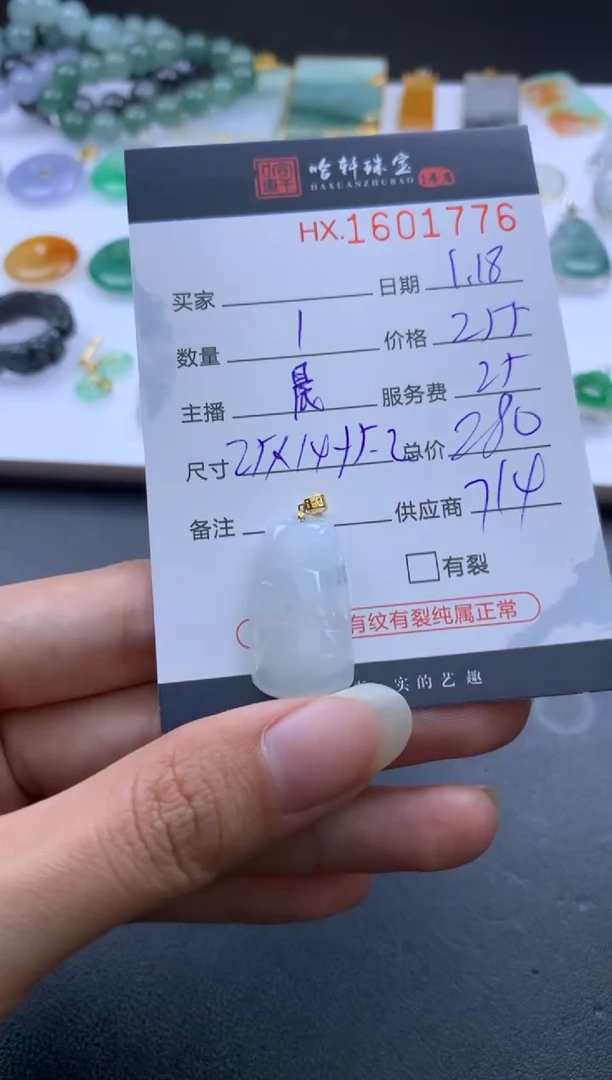 哈轩珠宝
HAXUANZHUBAO
HX.1601776
买家 日期 1.18
数量 1 价格 255
主播 晨 服务费 25
尺寸 25×14+5.2 总价 280
备注 供应商 714
有裂
有纹有裂纯属正常
实的艺趣